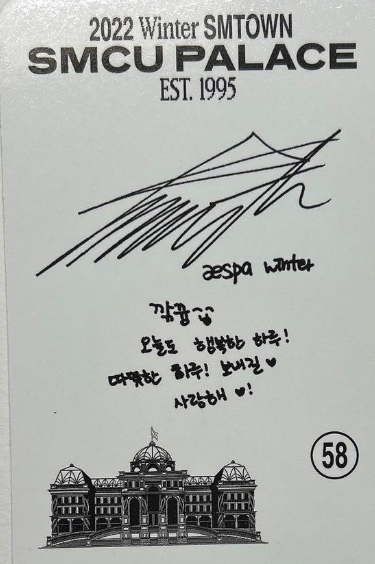 2022 Winter SMTOWN
SMCU PALACE
EST. 1995
æspa winter
깎꿉
오늘도 행복한 하루!
따뜻한 하루! 보내길 ♥
사랑해 ♥!
58